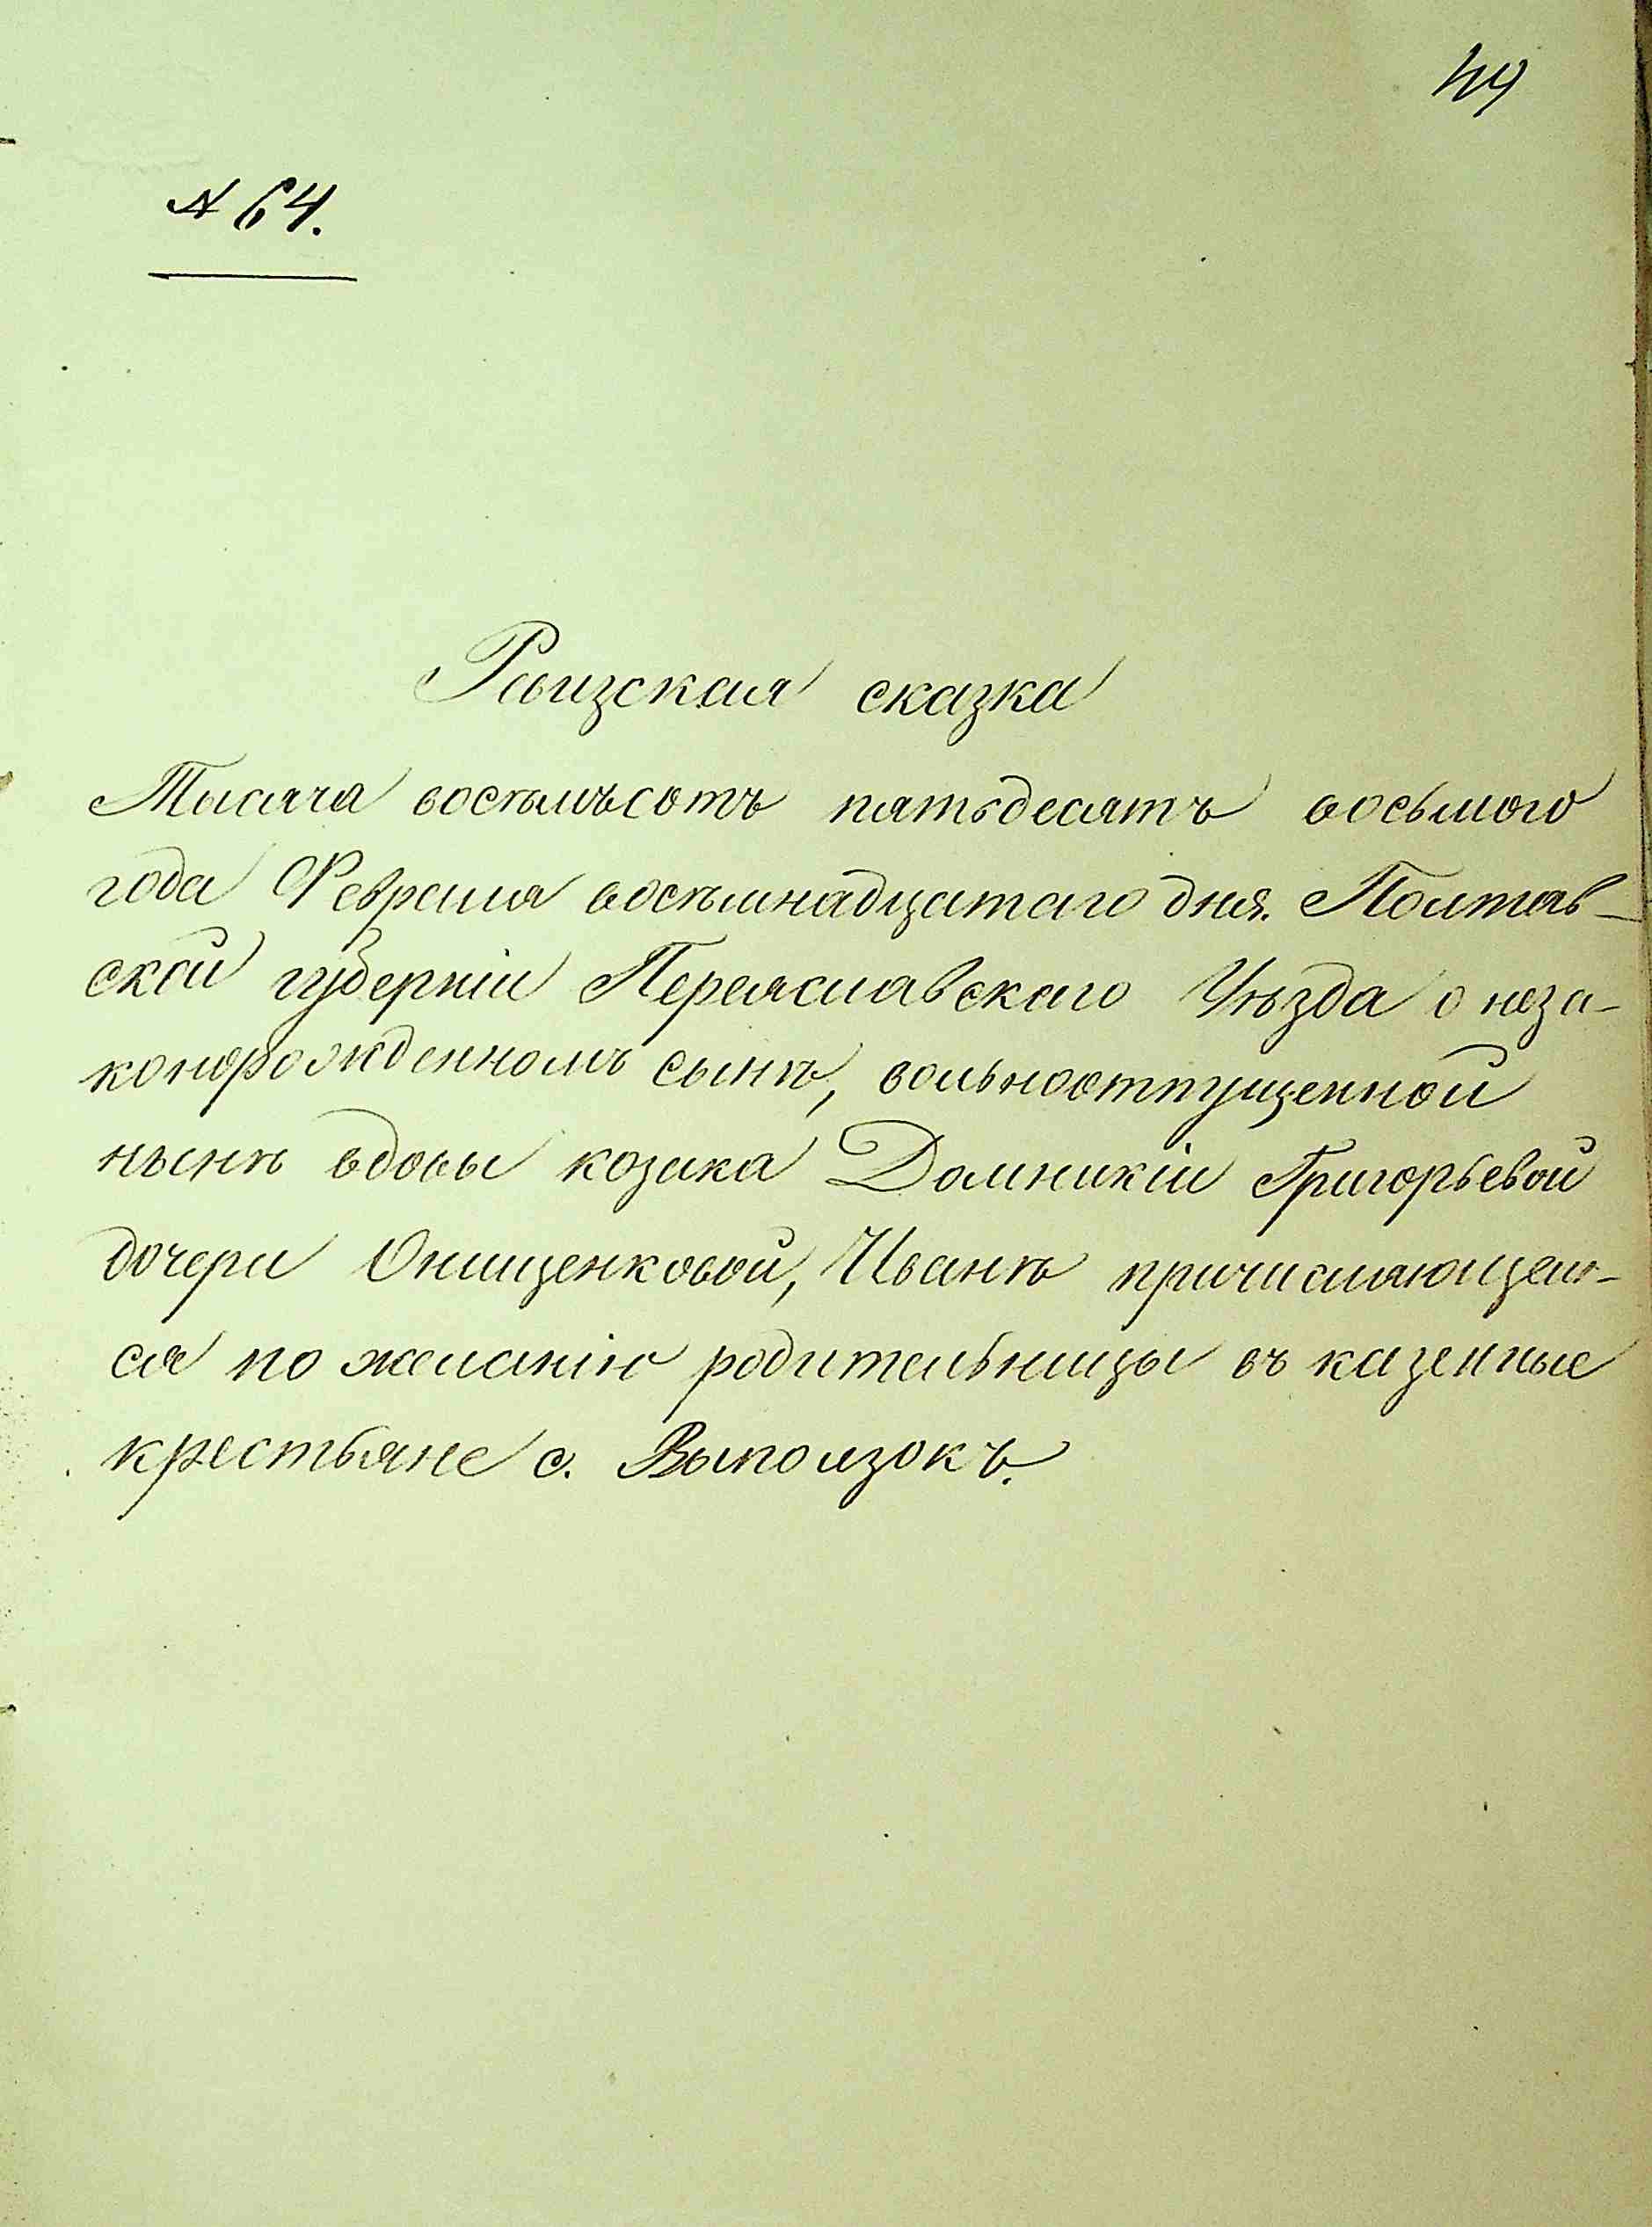 44
№ 64.
Ревизская сказка
Тысяча восемьсотъ пятьдесятъ восьмого
года Февраля восемнадцатаго дня. Полтав-
ской губерніи Переяславскаго Уѣзда о неза-
конорожденномъ сынѣ, вольноотпущенной
нынѣ вдовы козака Домникіи Григорьевой
дочери Онищенковой, Иванѣ причисляющем-
ся по желанію родительницы въ казенные
крестьяне с. Выползокъ.